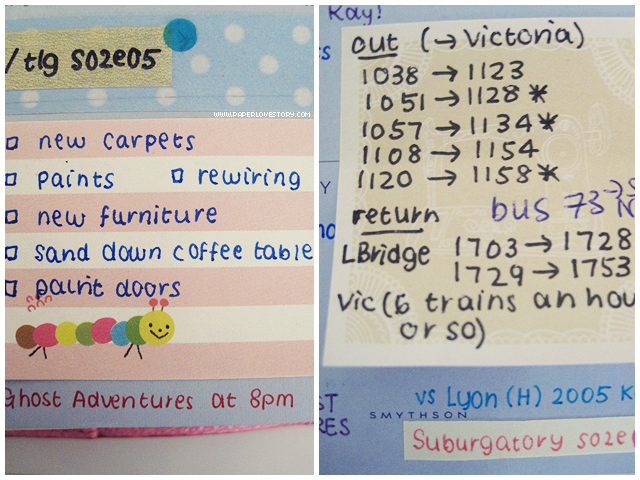 /tlg S02e05
WWW.PAPERLOVESTORY.COM
new carpets
paints rewiring
new furniture
sand down coffee table
paint doors
Ghost Adventures at 8pm
Kay!
out (→ Victoria)
1038 → 1123
1051 → 1128 *
1057 → 1134 *
1108 → 1154
1120 → 1158 *
return bus 73
LBridge 1703 → 1728
1729 → 1753
Vic (6 trains an hou
or so)
vs Lyon (H) 2005
SMYTHSON
Suburgatory S02e